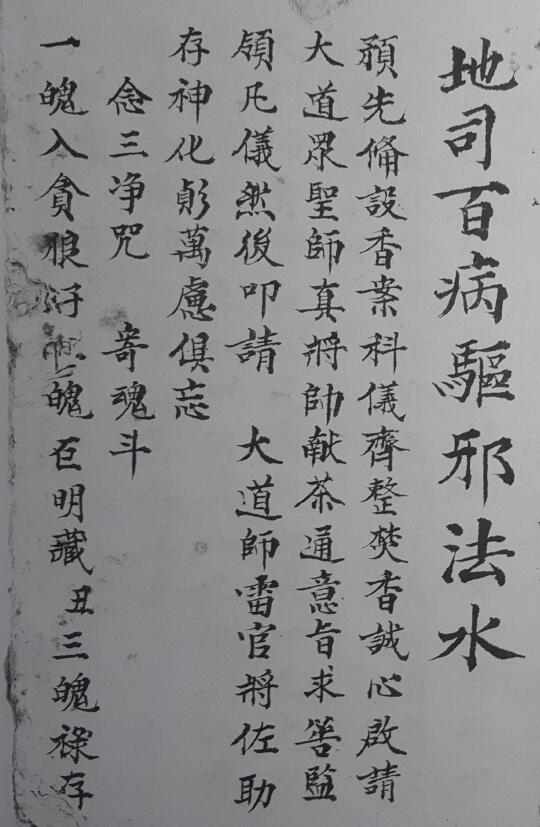 地司百病驅邪法水
預先俻設香案科儀齊整焚香誠心啟請
大道眾聖師真將帥献茶通意旨求筶監
領凡儀然後叩請 大道師雷官將佐助
存神化爲萬慮俱忘
念三净咒 寄魂斗
一魄入貪狼 魄巨明藏 丑三魄祿存